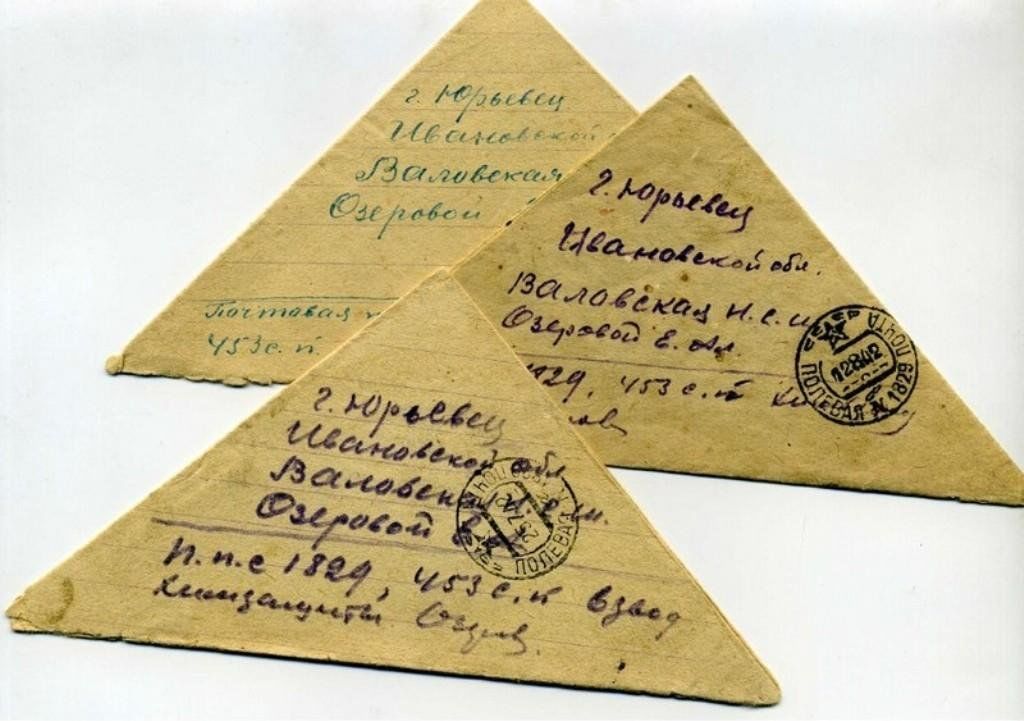 г. Юрьевец
Ивановской
Валовская
Озеровой
Почтовая
453 с. п.
г. Юрьевец
Ивановской обл.
Валовская Н.С.Ш.
Озеровой Е. Ал.
1829, 453 с. п
ПОЛЕВАЯ ПОЧТА 1829
12842
г. Юрьевец
Ивановской обл
Валовская Н.С.Ш.
Озеровой Е.
ПОЛЕВАЯ
П.п.с 1829, 453 с. п взвод
химзащиты Озеров.